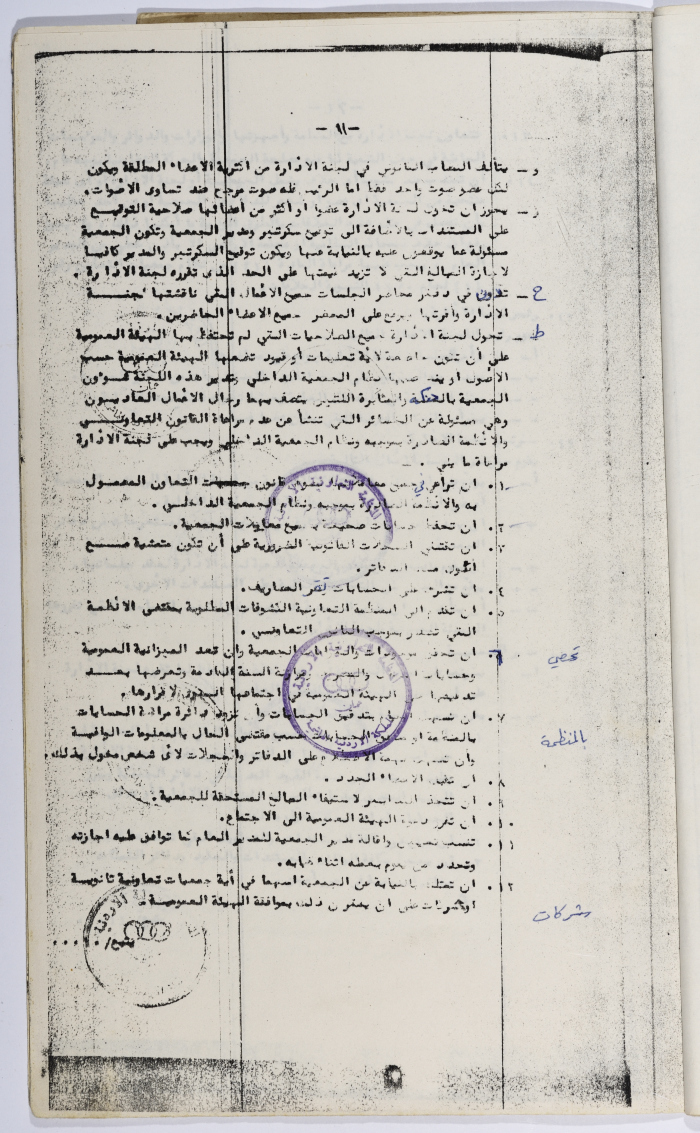 - ١١ -
و - يتألف النصاب القانوني في لجنة الادارة من أكثرية الاعضاء المطلقة ويكون
لكل عضو صوت واحد فقط اما الرئيس فله صوت مرجح عند تساوى الاصوات .
ز - يجوز ان تخول لجنة الادارة عضوا أو أكثر من أعضائها صلاحية التوقيع
على المستندات بالاضافة الى توقيع سكرتير ومدير الجمعية وتكون الجمعية
مسئولة عما يوقعون عليه بالنيابة عنها ويكون توقيع السكرتير والمدير كافيا
لاجازة المبالغ التي لا تزيد قيمتها على الحد الذى تقرره لجنة الادارة .
ح - تدون في دفتر محاضر الجلسات جميع الاعمال التي ناقشتها لجنة
الادارة وأقرتها ويوقع على المحضر جميع الاعضاء الحاضرين .
ط - تخول لجنة الادارة جميع الصلاحيات التي لم تحتفظ بها الهيئة العمومية
على أن تكون خاضعة لأية تعليمات أو قيود تضعها الهيئة العمومية حسب
الاصول او ينص عليها نظام الجمعية الداخلي وتدير هذه اللجنة شؤون
الجمعية بالحنكة والمثابرة اللتين يتصف بهما رجال الاعمال العاديون
وهي مسئولة عن الخسائر التي تنشأ عن عدم مراعاة القانون التعاوني
والانظمة الصادرة بموجبه ونظام الجمعية الداخلي ويجب على لجنة الادارة
مراعاة ما يلي . -
١. ان تراعي في جميع معاملاتها نصوص قانون جمعيات التعاون المعمول
به والانظمة الصادرة بموجبه ونظام الجمعية الداخلي .
٢. ان تحفظ حسابات صحيحة بجميع معاملات الجمعية .
٣. ان تقتني السجلات القانونية الضرورية على أن تكون متمشية مع
أصول مسك الدفاتر .
٤. ان تشرف على الحسابات تقر المصاريف .
٥. ان تقدم الى المنظمة التعاونية الكشوفات المطلوبة بمقتضى الانظمة
التي تصدر بموجب القانون التعاوني .
٦. ان تحضر موجودات والتزامات الجمعية وان تعد الميزانية العمومية
تحصي
وحسابات السنة القادمة وتعرضها بعد
تدقيقها على الهيئة العمومية في اجتماعها السنوى لاقرارها .
٧. ان تسهل بتدقيق الحسابات وأن تزود دائرة مراقبة الحسابات
بالمنظمة او حسب مقتضى الحال بالمعلومات الوافية
بالمنظمة
وان تسهل مهمة الاطلاع على الدفاتر والسجلات لأى شخص مخول بذلك .
٨. ان تقبل الاعضاء الجدد .
٩. ان تتخذ التدابير لاستيفاء المبالغ المستحقة للجمعية .
١٠. ان تقرر دعوة الهيئة العمومية الى الاجتماع .
١١. تنسب تعيين واقالة مدير الجمعية للمدير العام كما توافق عليه اجازته
وتحدد من يقوم بعمله اثناء غيابه .
١٢. ان تمتلك بالنيابة عن الجمعية اسهما في أية جمعيات تعاونية ثانوية
او شركات على ان يقترن ذلك بموافقة الهيئة العمومية .
شركات
يتبع / . . . . .